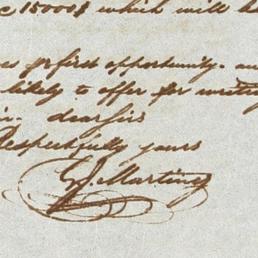 15000$ which will
first opportunity.
likely to offer for
dear Sir
Respectfully yours
G. J. Martinez